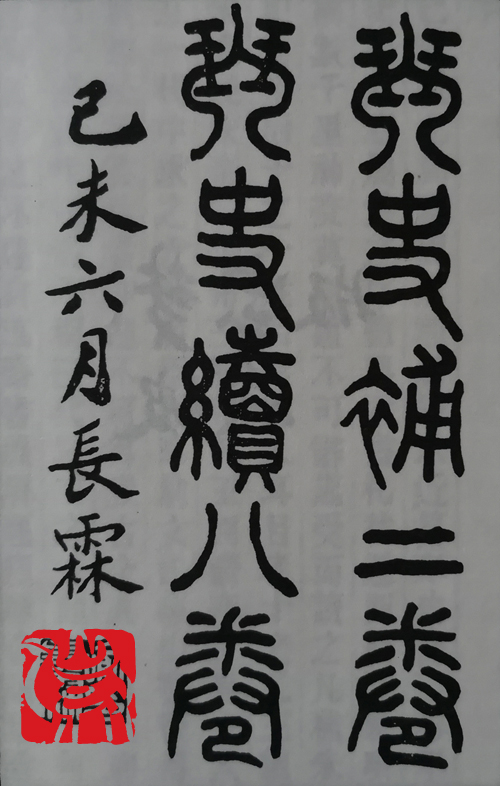 琴史補二卷
琴史續八卷
己未六月長霖